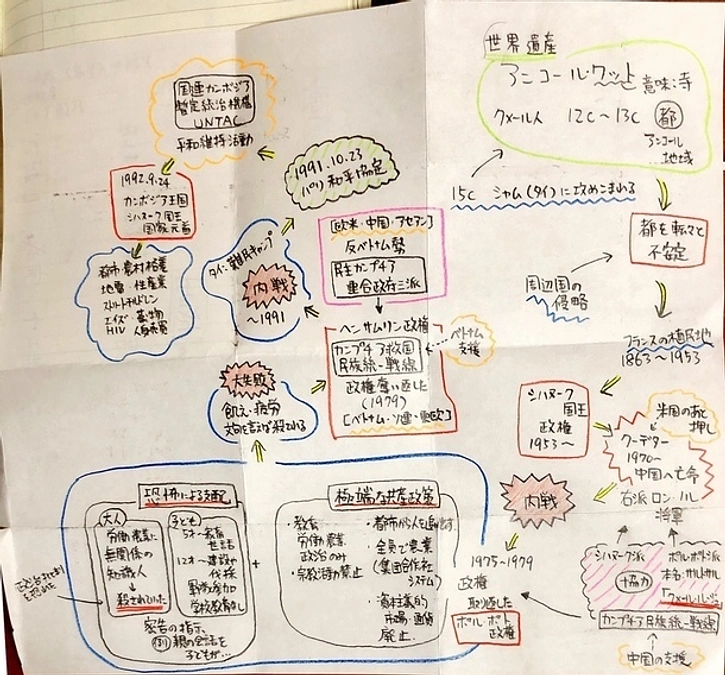 世界遺産
アンコールワット 意味:寺
クメール人 12c〜13c 都
アンコール
地域
15c シャム(タイ)に攻めこまれる
都を転々と
不安定
周辺国の
侵略
フランスの植民地
1863〜1953
シハヌーク
国王
政権
1953〜
米国のあと
押し
クーデター
1970〜
中国へ亡命
右派ロン・ノル
将軍
内戦
シハヌーク派
協力
ポル・ポト派
本名:サルトサル
「クメール・ルージュ」
カンプチア民族統一戦線
中国の支援
1975〜1979
政権
取り返した
ポル・ポト
政権
極端な共産政策
・教育
労働 農業
政治のみ
・宗教活動禁止
・都市から人を追い出す
・全員で農業
(集団合作社
システム)
・資本主義的
市場・通貨
廃止
+
恐怖による支配
大人
労働 農業に
無関係の
知識人
↓
殺されていた
子ども
5才〜教育
世話
12才〜建設や
伐採
戦争参加
学校教育なし
密告の指示
例 親の会話を
子どもが…
大失敗
飢え・疲労
文句を言えば殺される
ヘン・サムリン政権
カンプチア救国
民族統一戦線
政権奪い返した
(1979)
[ベトナム・ソ連・東欧]
ベトナム
支援
[欧米・中国・アセアン]
反ベトナム勢
民主カンプチア
連合政府三派
タイ:難民キャンプ
内戦
〜1991
1991.10.23
パリ和平協定
国連カンボジア
暫定統治機構
UNTAC
平和維持活動
1992.9.24
カンボジア王国
シハヌーク国王
国家元首
都市・農村格差
地雷 性産業
ストリートチルドレン
エイズ 薬物
HIV 人身売買